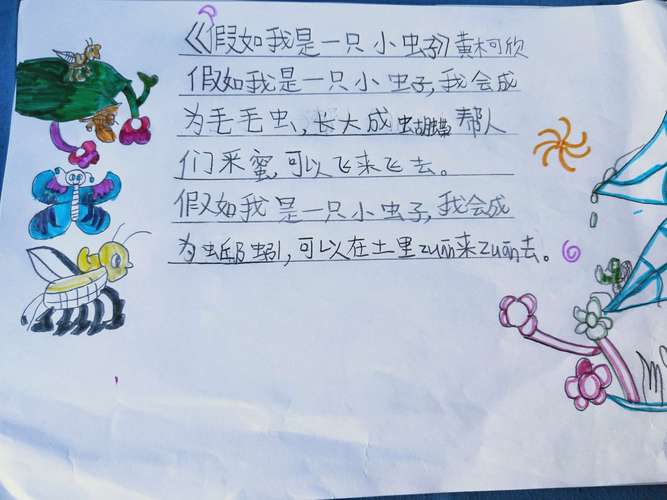 《假如我是一只小虫子》黄柯欣
假如我是一只小虫子,我会成
为毛毛虫,长大成蝴蝶帮人
们采蜜,可以飞来飞去。
假如我是一只小虫子,我会成
为蚯蚓,可以在土里zuān来zuān去。